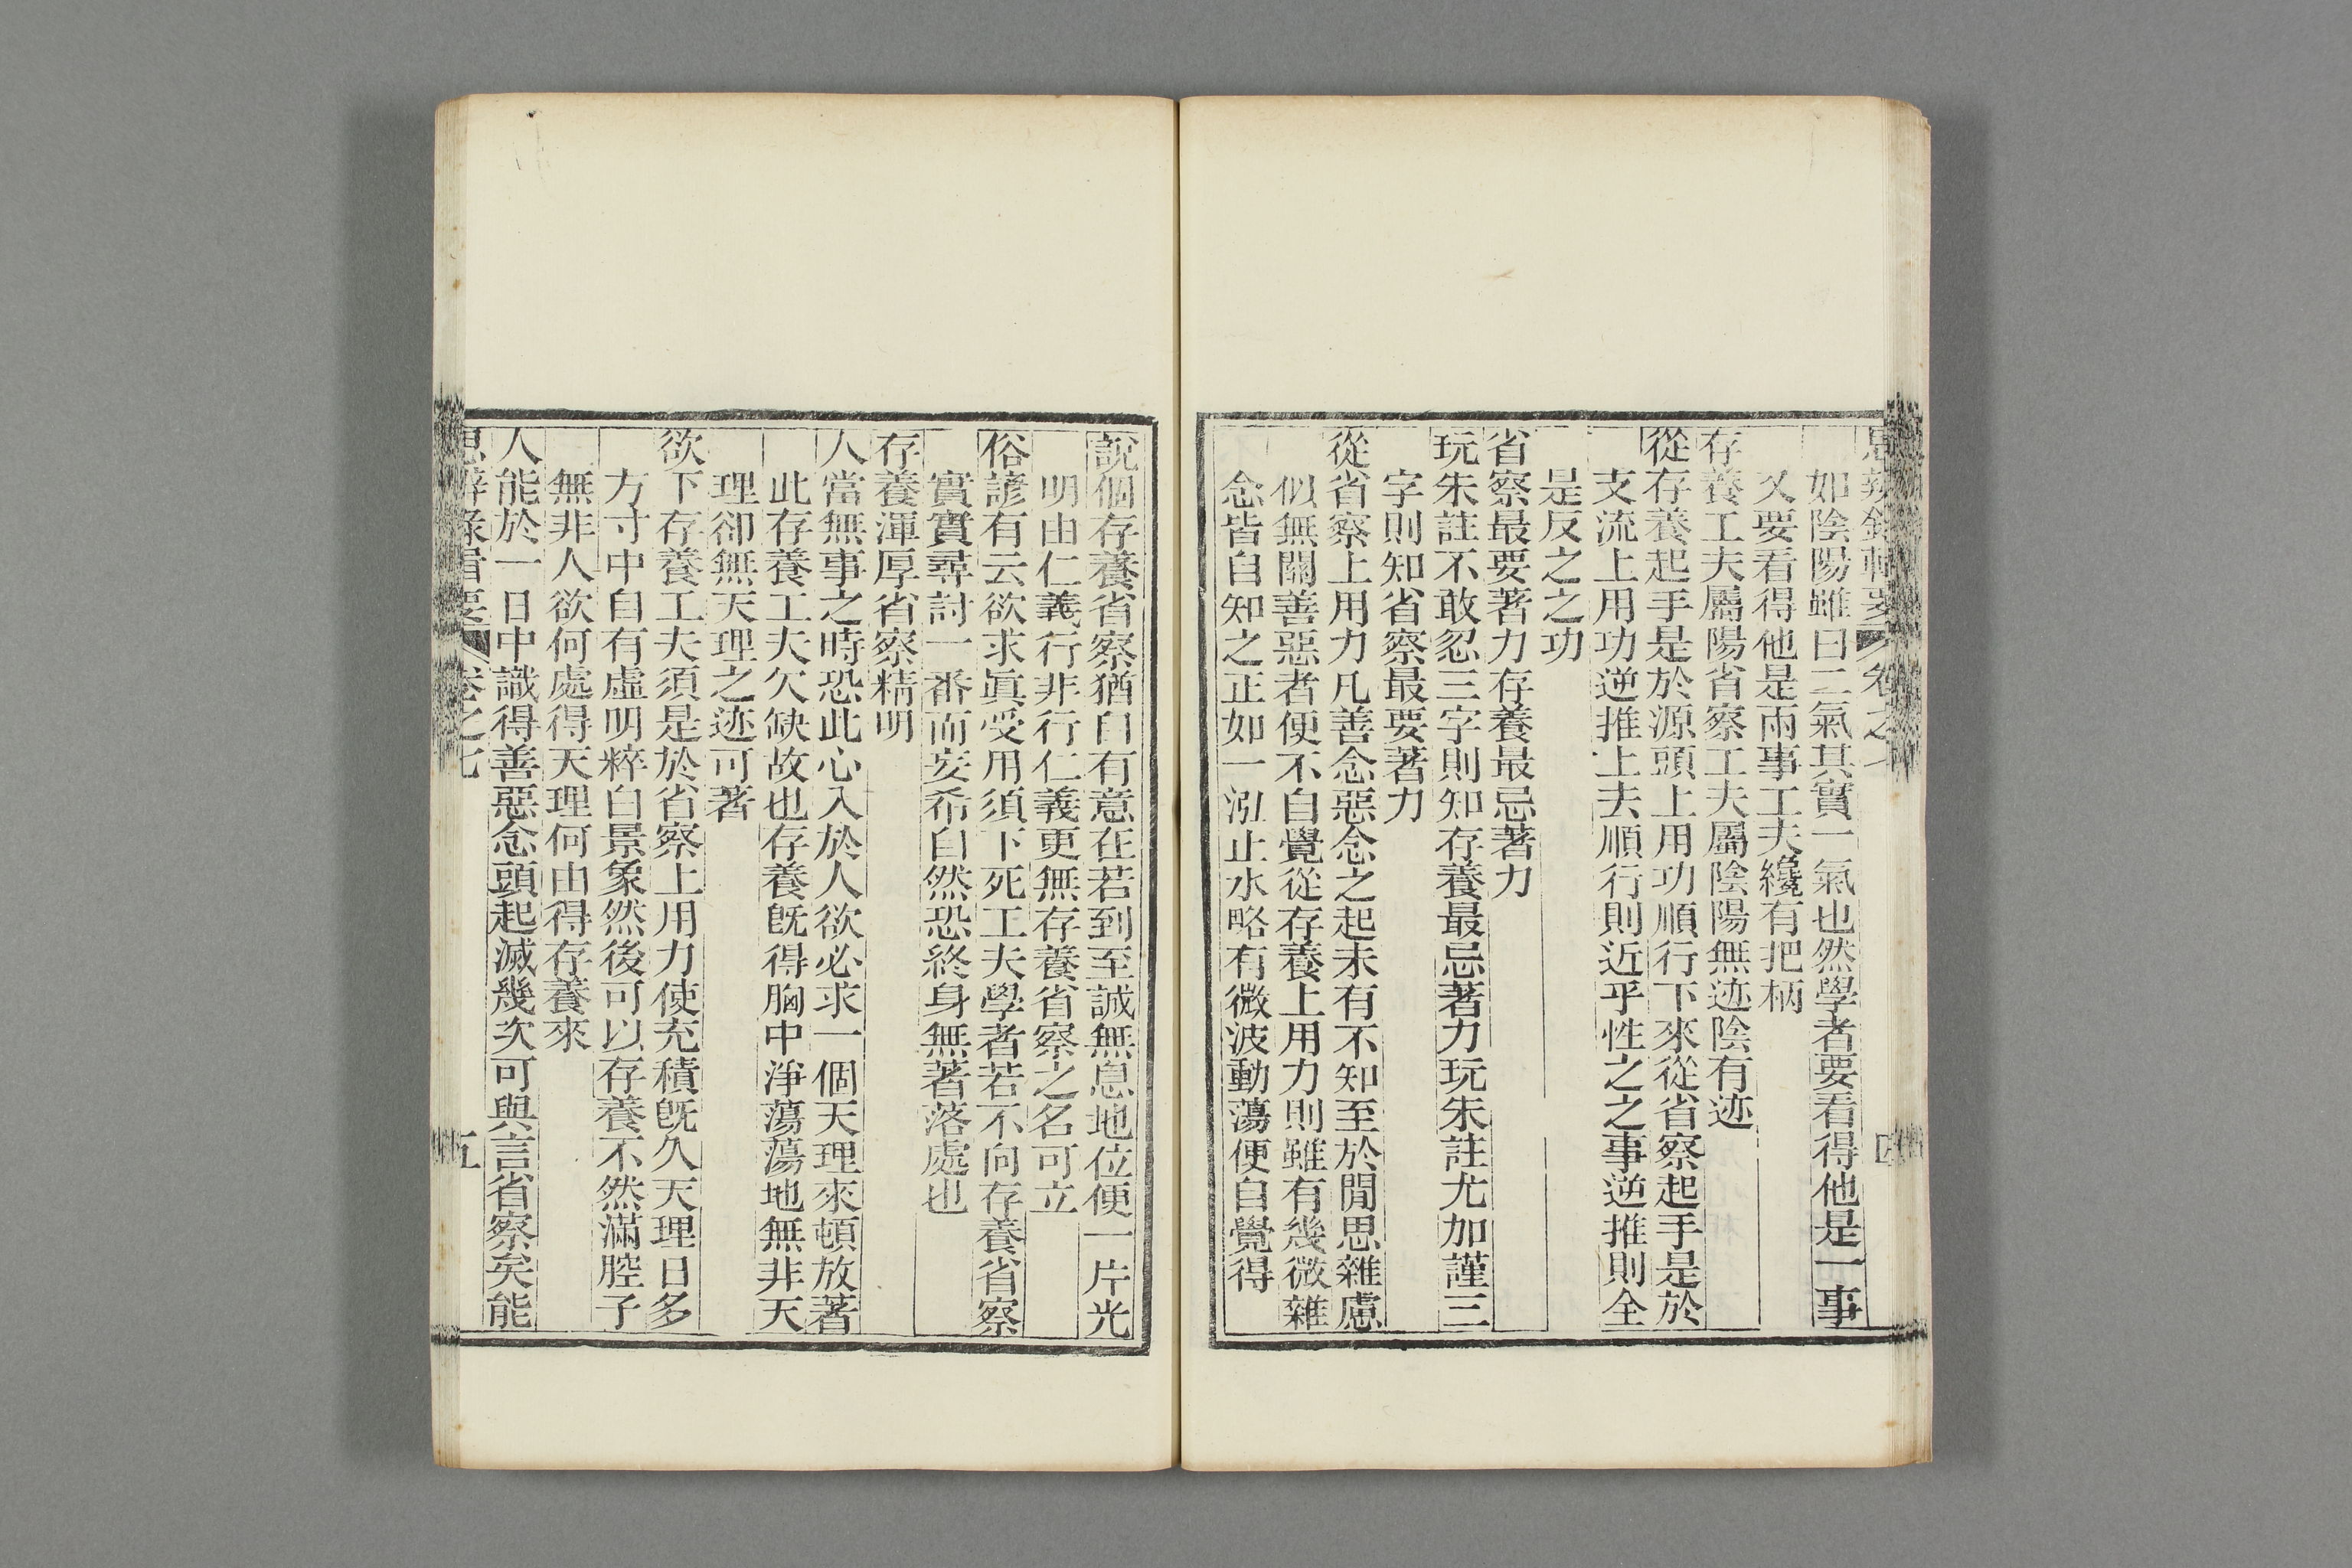 如陰陽雖曰二氣其實一氣也然學者要看得他是一事
又要看得他是兩事工夫纔有把柄
存養工夫屬陽省察工夫屬陰陽無迹陰有迹
從存養起手是於源頭上用功順行下來從省察起手是於
支流上用功逆推上去順行則近乎性之之事逆推則全
是反之之功
省察最要著力存養最忌著力
玩朱註不敢忽三字則知存養最忌著力玩朱註尤加謹三
字則知省察最要著力
從省察上用力凡善念惡念之起未有不知至於閒思雜慮
似無關善惡者便不自覺從存養上用力則雖有幾微雜
念皆自知之正如一泓止水略有微波動蕩便自覺得
說個存養省察猶曰有意在若到至誠無息地位便一片光
明由仁義行非行仁義更無存養省察之名可立
俗諺有云欲求眞受用須下死工夫學者若不向存養省察
實實尋討一番而妄希自然恐終身無著落處也
存養渾厚省察精明
人當無事之時恐此心入於人欲必求一個天理來頓放著
此存養工夫欠缺故也存養旣得胸中淨蕩蕩地無非天
理卻無天理之迹可著
欲下存養工夫須是於省察上用力使充積旣久天理日多
方寸中自有虛明粹白景象然後可以存養不然滿腔子
無非人欲何處得天理何由得存養來
人能於一日中識得善惡念頭起滅幾次可與言省察矣能
思辨錄輯要 卷之七 五